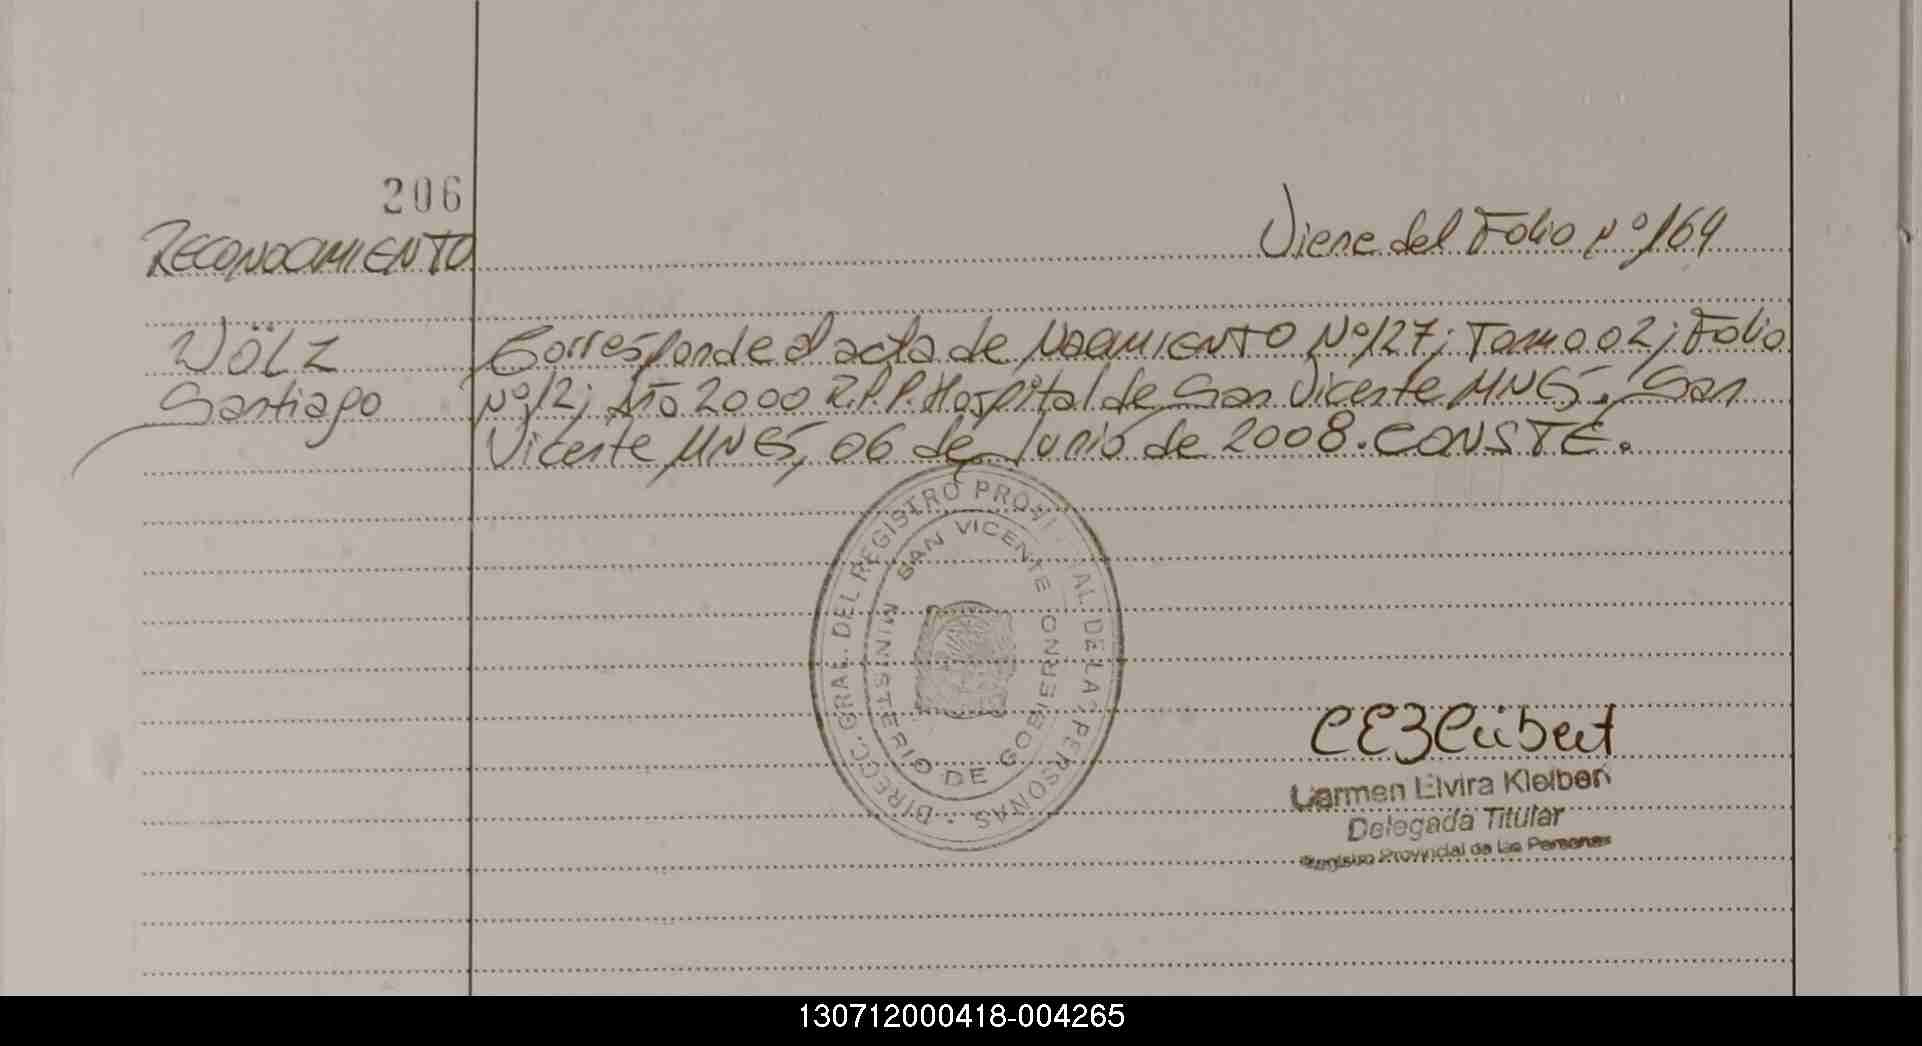 206
RECONOCIMIENTO
Viene del Folio Nº 164
WÖLZ
Santiago
Corresponde al acta de NACIMIENTO Nº 127; Tomo 02; Folio
Nº 12; Año 2000 R.P.P. Hospital de San Vicente MNES. San
Vicente MNES, 06 de Junio de 2008. CONSTE.
DIRECC. GRAL. DEL REGISTRO PROVI AL DE LA PERSONAS
SAN VICENTE
MINISTERIO DE GOBIERNO
Carmen Elvira Kleibert
Delegada Titular
Registro Provincial de las Personas
130712000418-004265